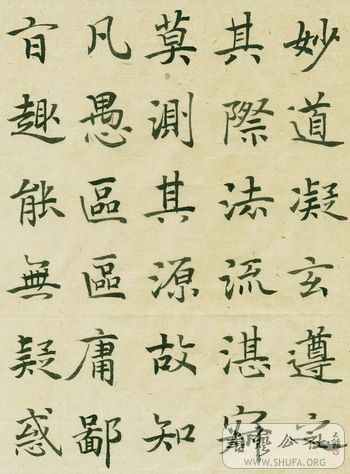 妙道凝玄遵之
其際法流湛寂
莫測其源故知
凡愚區區庸鄙
旨趣能無疑惑
WWW.SHUFA.ORG